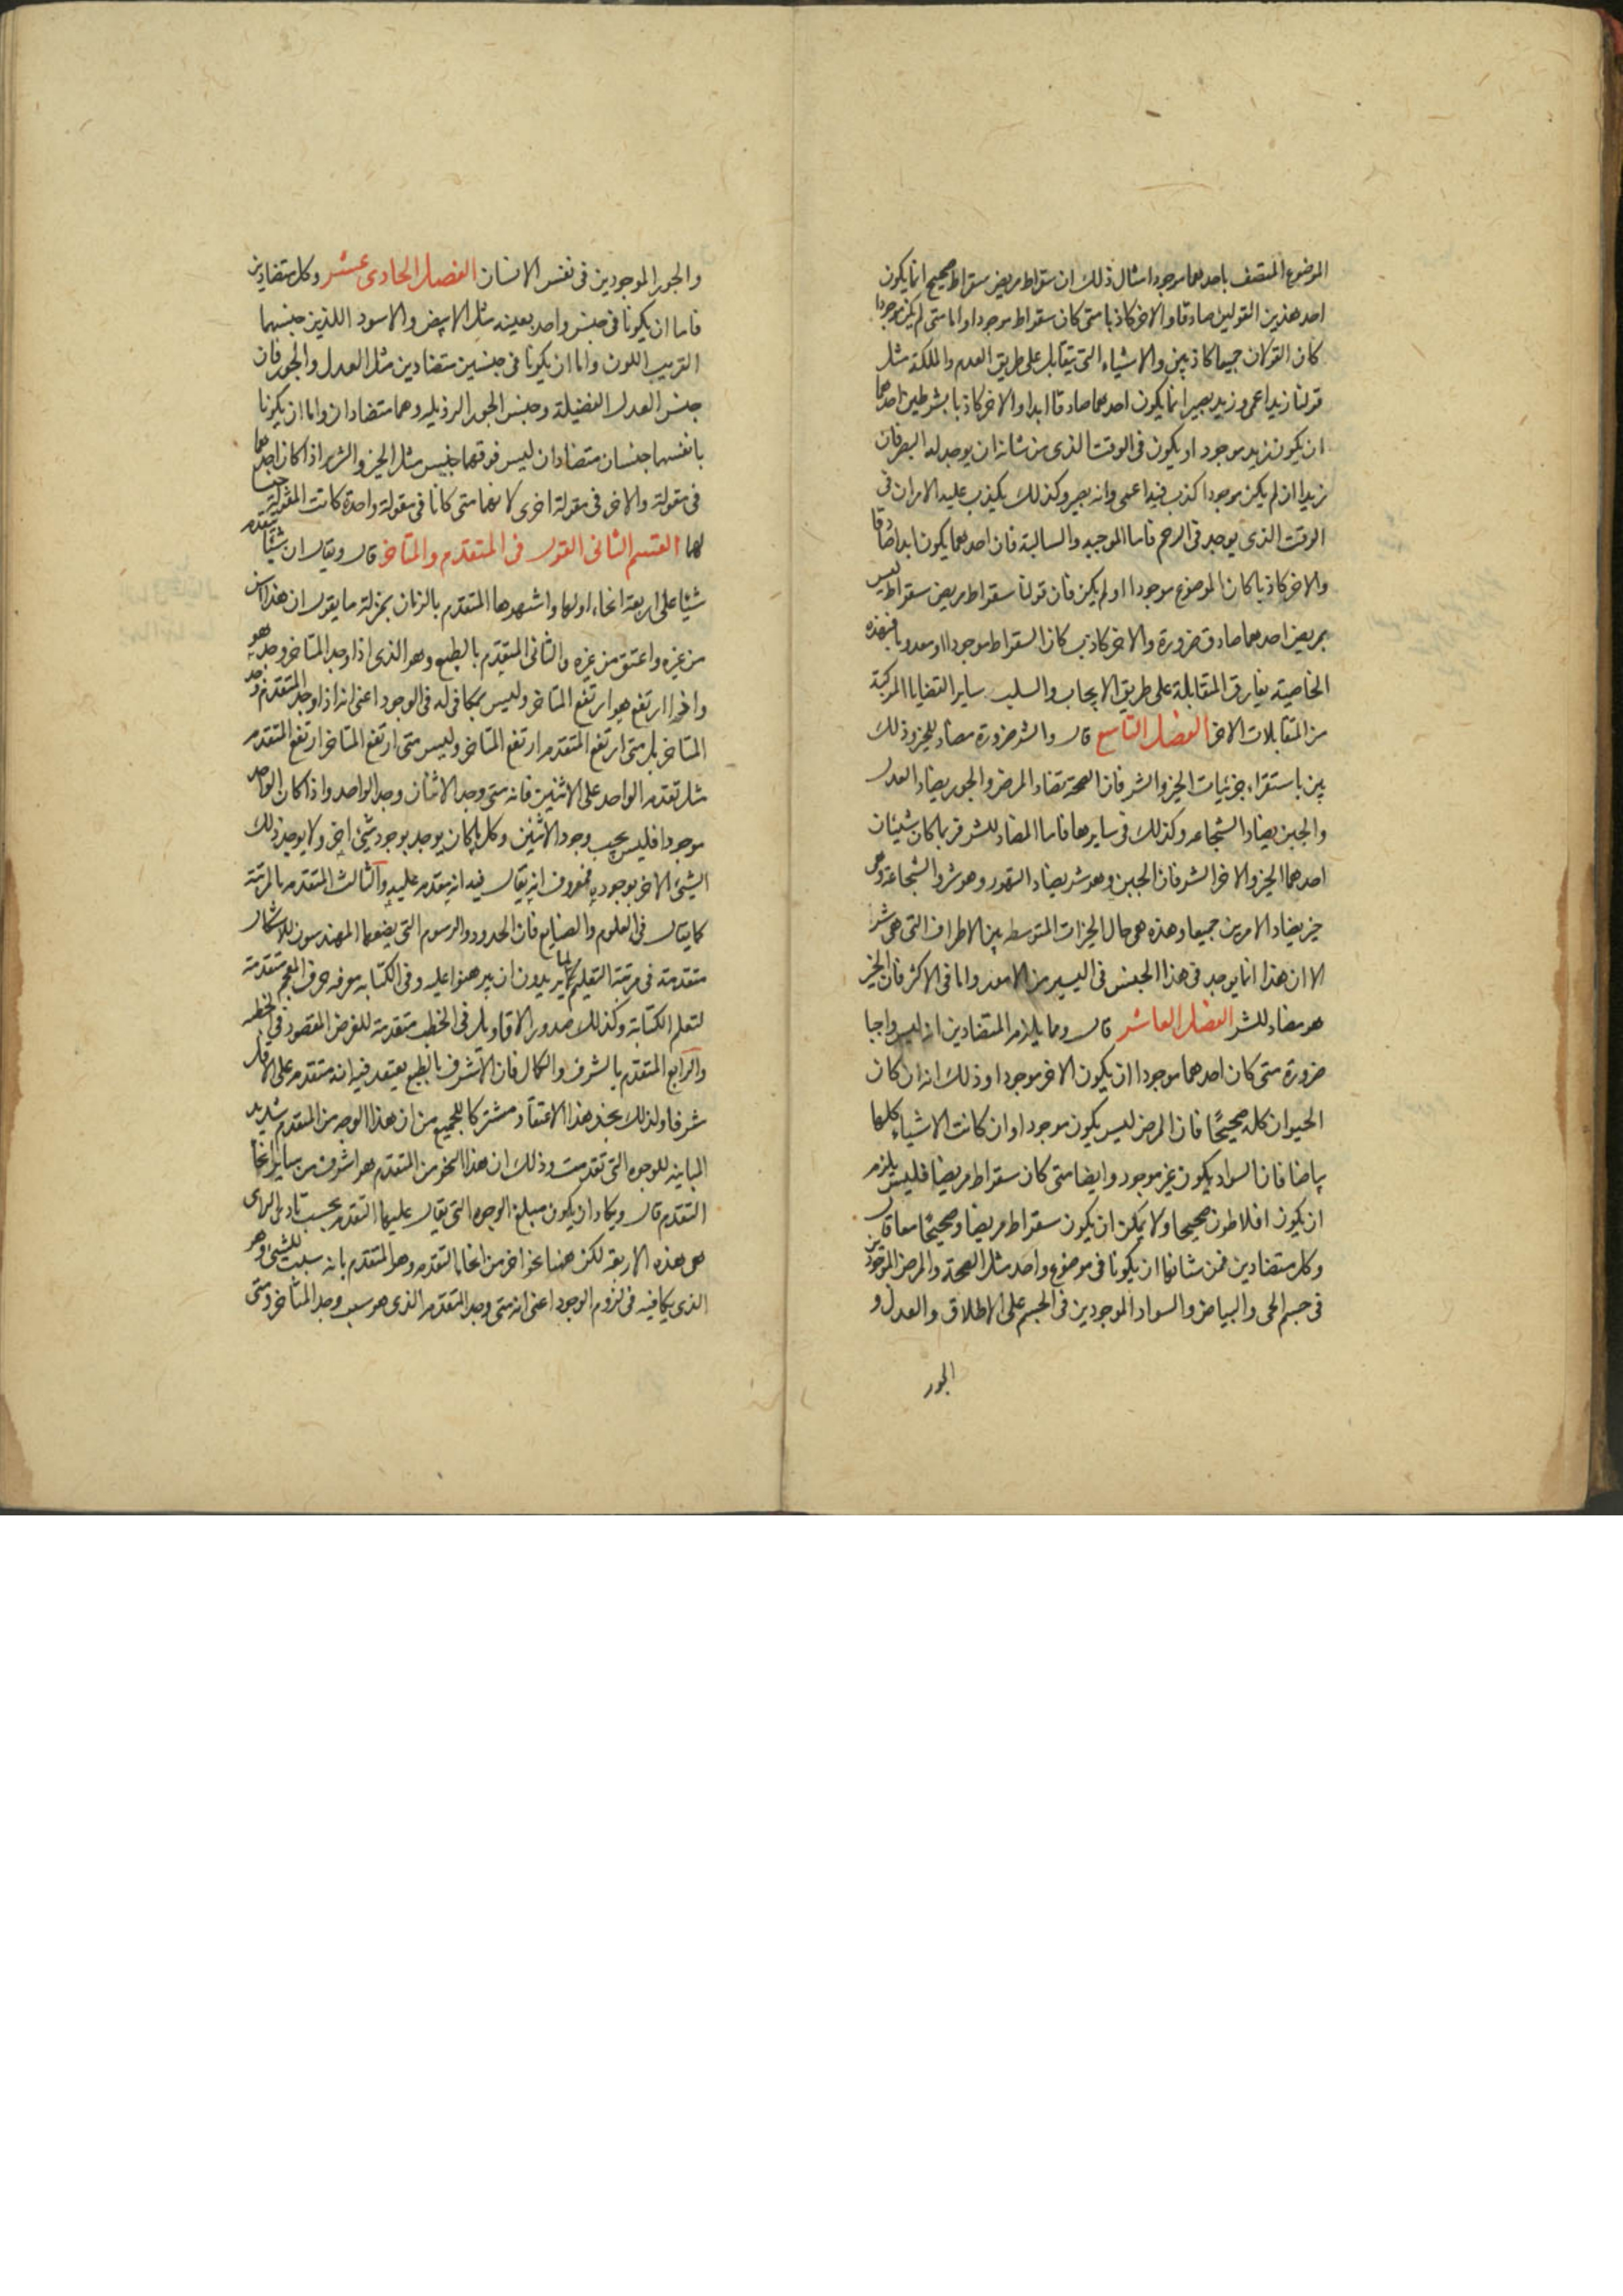 الموضوع المتصف باحدهما موجودا مثال ذلك ان سقراط مريض سقراط صحيح انما يكون
احد هذين القولين صادقا والاخر كاذبا متى كان سقراط موجودا واما متى لم يكن موجودا
كان القولان جميعا كاذبين والاشياء التى يتقابل على طريق العدم والملكة مثل
قولنا زيد اعمى وزيد بصير انما يكون احدهما صادقا ابدا والاخر كاذبا بشرطين احدهما
ان يكون زيد موجود او يكون فى الوقت الذى من شانه ان يوجد له البصر فان
زيدا ان لم يكن موجودا كذب فيه اعمى وانه بصير وكذلك يكذب عليه الامران فى
الوقت الذى يوجد فى الرحم فاما الموجبه والسالبة فان احدهما يكون ابدا صادقا
والاخر كاذبا كان الموضوع موجودا او لم يكن فان قولنا سقراط مريض سقراط ليس
بمريض احدهما صادق ضرورة والاخر كاذب كان السقراط موجودا او معدوما فبهذه
الخاصيته يفارق المتقابلة على طريق الايجاب والسلب ساير القضايا المركبة
من المتقابلات الاخر الفصل التاسع قال والشر ضرورة مضاد للخير وذلك
بين باستقراء جزئيات الخير والشر فان الصحة تضاد المرض والجور يضاد العدل
والجبن يضاد الشجاعه وكذلك فى سايرها فاما المضاد للشر فربما كان شيئان
احدهما الخير والاخر الشر فان الجبن وهو شر يضاد التهور وهو شر والشجاعة وهى
خير يضاد الامرين جميعا وهذه هى حال الخيرات المتوسطه بين الاطراف التى هى شر
الا ان هذا انما يوجد فى هذا الجنس فى اليسير من الامور واما فى الاكثر فان الخير
هو مضاد للشر الفصل العاشر قال ومما يلزم المتضادين انه ليس واجبا
ضرورة متى كان احدهما موجودا ان يكون الاخر موجودا وذلك انه ان كان
الحيوان كله صحيحًا فان المرض ليس يكون موجودا وان كانت الاشياء كلها
بياضا فان السواد يكون غير موجود وايضا متى كان سقراط مريضا فليس يلزم
ان يكون افلاطون صحيحا ولا يمكن ان يكون سقراط مريضا وصحيحًا معا قال
وكل متضادين فمن شانهما ان يكونا فى موضوع واحد مثل الصحة والمرض الموجودين
فى جسم الحى والبياض والسواد الموجودين فى الجسم على الاطلاق والعدل و
الجور
والجور الموجودين فى نفس الانسان الفصل الحادى عشر وكل متضادين
فاما ان يكونا فى جنس واحد بعينه مثل الابيض والاسود اللذين جنسهما
القريب اللون واما ان يكونا فى جنسين متضادين مثل العدل والجور فان
جنس العدل الفضيلة وجنس الجور الرذيله وهما متضادان واما ان يكونا
بانفسهما جنسان متضادان ليس فوقهما جنس مثل الخير والشر اذا كان احدهما
فى مقولة والاخر فى مقولة اخرى لانهما متى كانا فى مقولة واحدة كانت المقولة جنسا
لهما القسم الثانى القول فى المتقدم والمتاخر قال ويقال ان شيئا يتقدم
شيئا على اربعة انحاء اولها واشهرها المتقدم بالزمان بمنزلة ما يقول ان هذا اسن
من غيره واعتق من غيره والثانى المتقدم بالطبع وهو الذى اذا وجد المتاخر وجد هو
واذا ارتفع هو ارتفع المتاخر وليس بمكافى له فى الوجود اعنى انه اذا وجد المتقدم وجد
المتاخر بل متى ارتفع المتقدم ارتفع المتاخر وليس متى ارتفع المتاخر ارتفع المتقدم
مثل تقدم الواحد على الاثنين فانه متى وجد الاثنان وجد الواحد واذا كان الواحد
موجودا فليس يجب وجود الاثنين وكل ما كان يوجد بوجود شئ اخر ولا يوجد ذلك
الشئ الاخر بوجوده فمعروف انه يقال فيه انه يتقدم عليه والثالث المتقدم بالمرتبة
كما يقال فى العلوم والصنايع فان الحدود والرسوم التى يضعها المهندسون للاشكال
متقدمة فى مرتبة التعليم لما يريدون ان يبرهنوا عليه وفى الكتابه معرفه حروف المعجم متقدمة
لتعلم الكتابة وكذلك صدور الاقاويل فى الخطب متقدمة للغرض المقصود فى الخطبه
والرابع المتقدم بالشرف والكمال فان الاشرف بالطبع يعتقد فيه انه متقدم على الاقل
شرفا ولذلك نجد هذا الاعتقاد مشتركا للجميع من ان هذا الوجه من المتقدم شديد
المباينه للوجوه التى تقدمت وذلك ان هذا النحو من المتقدم هو اشرف من ساير انحا
التقدم قال ويكاد ان يكون مبلغ الوجوه التى يقال عليها التقدم بحسب بادى الراى
هى هذه الاربعة لكن ههنا نحو اخر من انحا التقدم وهو المتقدم بانه سبب للشئ وهو
الذى يكافيه فى لزوم الوجود اعنى انه متى وجد المتقدم الذى هو سبب وجد المتاخر ومتى